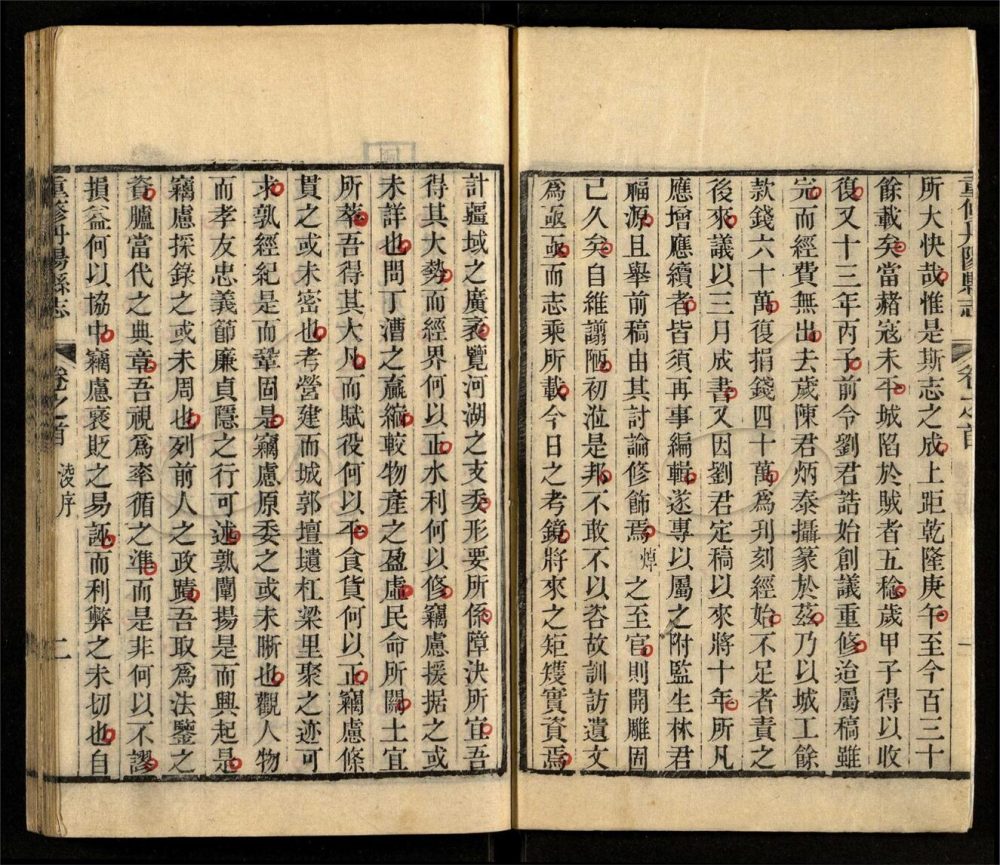 所大快哉惟是斯志之成上距乾隆庚午至今百三十
餘載矣當赭寇未平城陷於賊者五稔歲甲子得以收
復又十三年丙子前令劉君誥始創議重修迨屬稿雖
完而經費無出去歲陳君炳泰攝篆於茲乃以城工餘
款錢六十萬復捐錢四十萬爲刋刻經始不足者責之
後來議以三月成書又因劉君定稿以來將十年所凡
應增應續者皆須再事編輯遂專以屬之附監生林君
福源且舉前稿由其討論修飾焉焯之至官則開雕固
已久矣自維謭陋初涖是邦不敢不以咨故訓訪遺文
爲亟亟而志乘所載今日之考鏡將來之矩矱實資焉
重修丹陽縣志
卷之首
一
計疆域之廣袤覽河湖之支委形要所係障決所宜吾
得其大勢而經界何以正水利何以修竊慮援据之或
未詳也問丁漕之贏縮較物產之盈虛民命所關土宜
所萃吾得其大凡而賦役何以平食貨何以正竊慮條
貫之或未密也考營建而城郭壇壝杠梁里聚之迹可
求孰經紀是而鞏固是竊慮原委之或未晰也觀人物
而孝友忠義節廉貞隱之行可述孰闡揚是而興起是
竊慮採錄之或未周也列前人之政蹟吾取爲法鑒之
資臚當代之典章吾視爲率循之準而是非何以不謬
損益何以協中竊慮褒貶之易誣而利獘之未切也自
重修丹陽縣志
卷之首
淩序
二